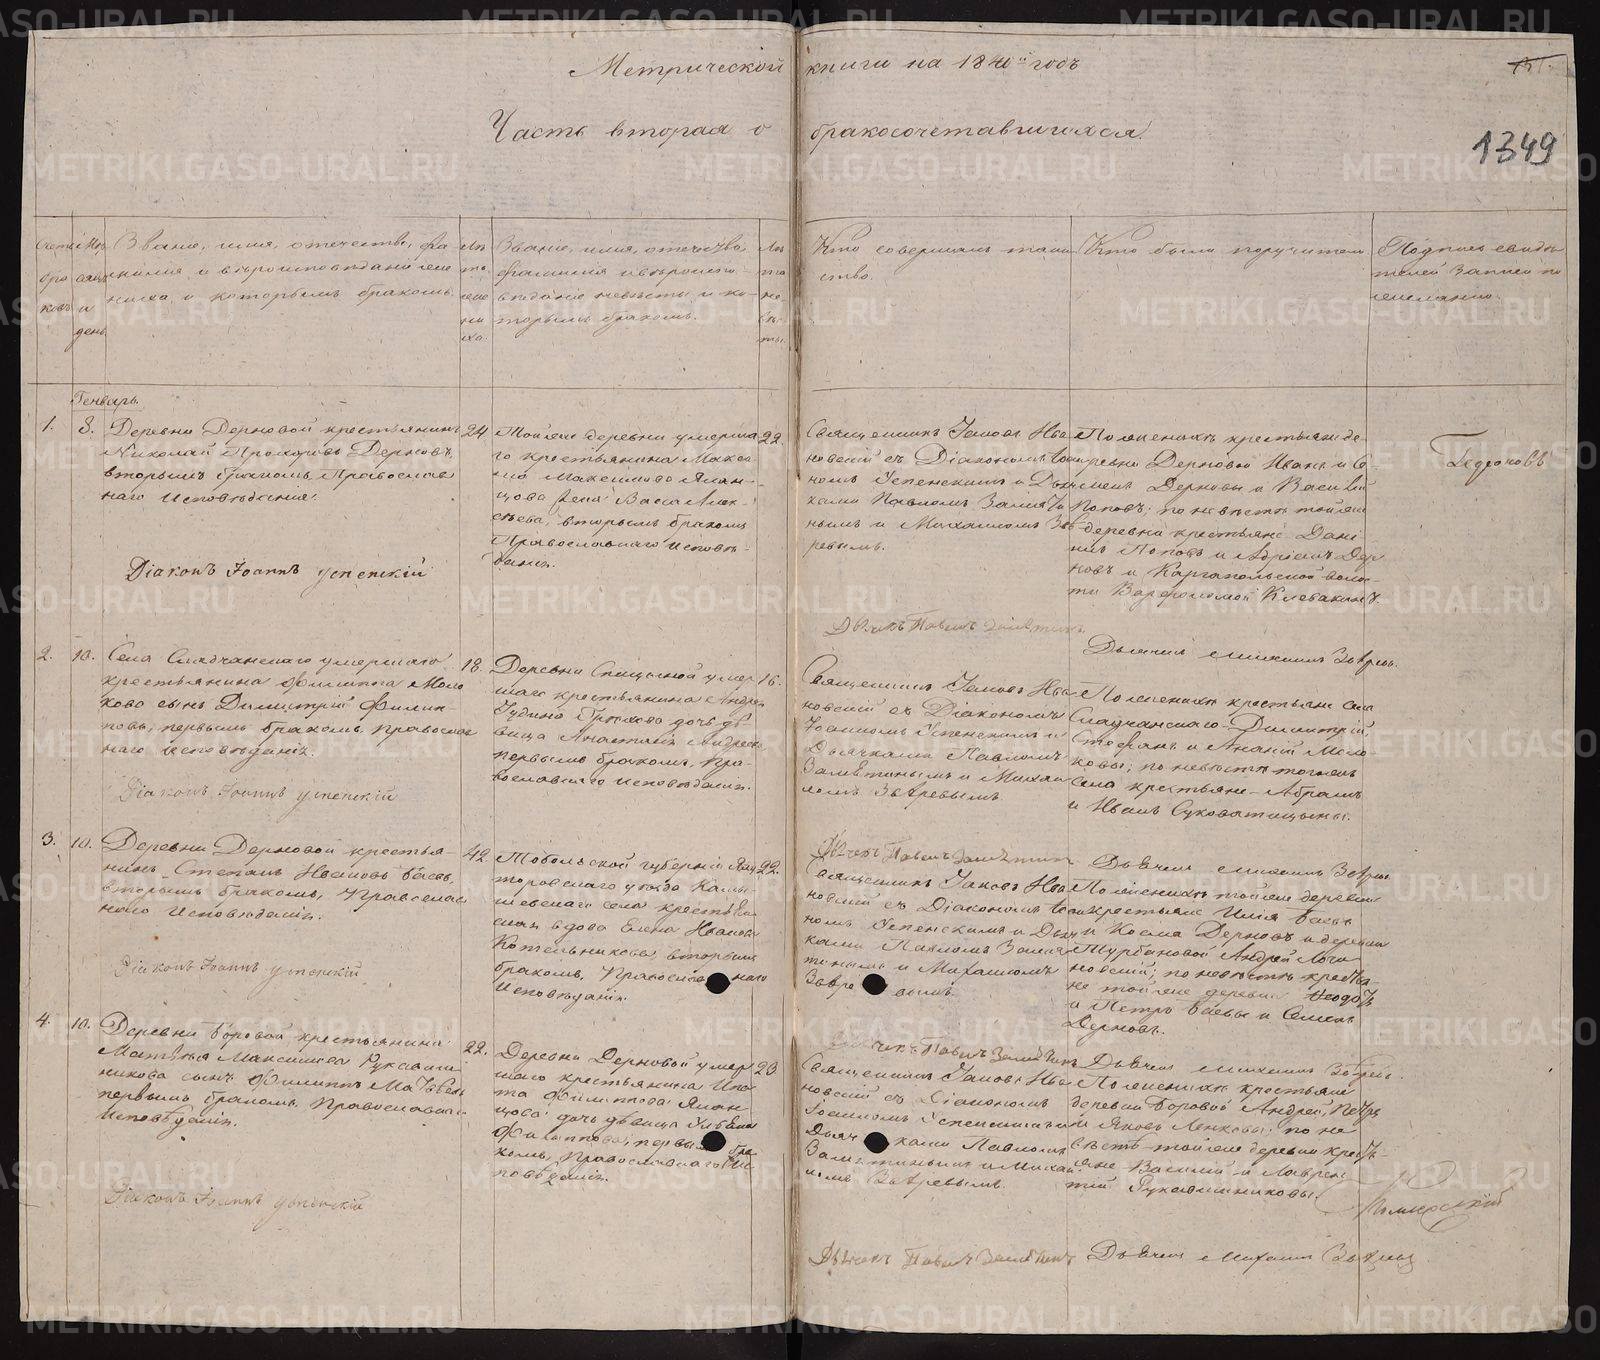 Метрической книги на 1840й годъ
Часть вторая о бракосочетавшихся.
1349
Счетъ браковъ
Мѣсяцъ и день
Званіе, имя, отечество, фа-
милия и вѣроисповѣданіе же-
ниха и которымъ бракомъ.
Лѣта жениха.
Званіе, имя, отечество
фамилия и вѣроиспо-
вѣданіе невѣсты и ко-
торымъ бракомъ.
Лѣта невѣсты.
Кто совершалъ таин
ство.
Кто были поручители
Подпись свидѣ
телей записи по
желанію.
Генварь.
1.
8.
Деревни Дерновой крестьянинъ
Николай Прохоровъ Дерновъ,
вторымъ бракомъ, Православ
наго исповѣданія.
Діаконъ Іоаннъ Успенскій
24
Той же деревни умерша
го крестьянина Макси
ма
жена Васса Алек-
сѣева, вторымъ бракомъ
Православнаго исповѣ-
данія.
22.
Священникъ Іаковъ Ива
новскій съ Діакономъ Іоан
номъ Успенскимъ и Дьяч
ками Павломъ Замяти
нымъ и Михаиломъ Звѣ
ревымъ.
По женихѣ крестьяне де-
ревни Дерновой Иванъ и Се-
менъ Дерновы и Василій
Поповъ; по невѣстѣ той же
деревни крестьяне Дані
илъ Поповъ и Адріанъ Дер
новъ и Каргапольской волос-
ти Варфоломей Клевакинъ.
Дьячекъ Павелъ Замятинъ
Дьячекъ Михаилъ Звѣревъ.
2.
10.
Села Сладчанскаго умершаго
крестьянина Филиппа Моло
кова сынъ Димитрій Филип-
повъ, первымъ бракомъ, православ
наго исповѣданія.
Діаконъ Іоаннъ Успенскій
18.
Деревни Спицыной умер
шаго крестьянина Андрея
дочь дѣ-
вица Анастасія Андреева
первымъ бракомъ, Пра-
вославнаго исповѣданія.
16.
Священникъ Іаковъ Ива
новскій съ Діакономъ
Іоанномъ Успенскимъ и
Дьячками Павломъ
Замятинымъ и Михаи
ломъ Звѣревымъ
По женихѣ крестьяне села
Сладчанскаго Димитрій,
Стефанъ и Ананій Моло-
ковы; по невѣстѣ того же
села крестьяне Абрамъ
и Иванъ Суховатицыны.
Дьячекъ Павелъ Замятинъ
Дьячекъ Михаилъ Звѣревъ
3.
10.
Деревни Дерновой крестья-
нинъ Степанъ Ивановъ Баевъ,
вторымъ бракомъ, Православ
наго исповѣданія.
Діаконъ Іоаннъ Успенскій
42
Тобольской губерніи Ялу
торовскаго уѣзда Камы-
шевскаго села крестьян
ская вдова Елена Иванова
Котельникова, вторымъ
бракомъ, Православнаго
исповѣданія.
22.
Священникъ Іаковъ Ива
новскій съ Діакономъ Іоан
номъ Успенскимъ и Дьяч
ками Павломъ Замя
тинымъ и Михаиломъ
Звѣревымъ.
По женихѣ той же деревни
крестьяне Илія Баевъ
и Косма Дерновъ и деревни
Турбановой Андрей
по невѣстѣ крестья-
не той же деревни Ѳеодоръ
и Петръ Баевы и Семенъ
Дерновъ.
Дьячекъ Павелъ Замятинъ
Дьячекъ Михаилъ Звѣревъ.
4.
10.
Деревни Боровой крестьянина
Матвѣя Максимова Рукавиш
никова сынъ Филиппъ Матвѣевъ
первымъ бракомъ, Православнаго
исповѣданія.
Діаконъ Іоаннъ Успенскій
22.
Деревни Дерновой умер
шаго крестьянина Ипа
та Филиппова
дочь дѣвица
первымъ бра
комъ, православнаго Ис-
повѣданія.
23
Священникъ Іаковъ Ива
новскій съ Діакономъ
Іоанномъ Успенскимъ и
Дьячками Павломъ
Замятинымъ и Михаи
ломъ Звѣревымъ.
По женихѣ крестьяне
деревни Боровой Андрей, Петръ
и Яковъ Ленковы; по не
вѣстѣ той же деревни кресть-
яне Василій и Лаврен
тій Рукавишниковы.
Дьячекъ Павелъ Замятинъ
Дьячекъ Михаилъ Звѣревъ
METRIKI.GASO-URAL.RU